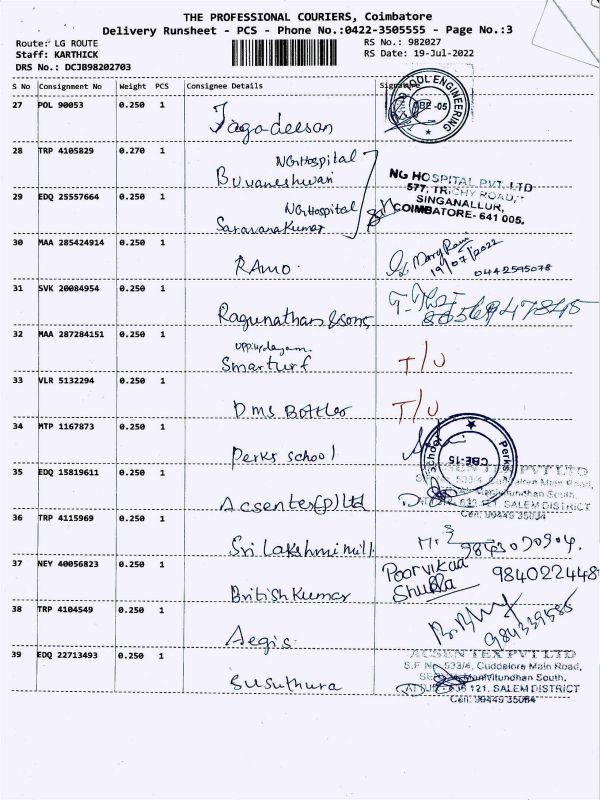 THE PROFESSIONAL COURIERS, Coimbatore
Delivery Runsheet - PCS - Phone No.:0422-3505555 - Page No.:3
Route: LG ROUTE RS No.: 982027
Staff: KARTHICK RS Date: 19-Jul-2022
DRS No.: DCJB98202703
S No Consignment No Weight PCS Consignee Details Signature
27 POL 90053 0.250 1 Jagadeesan
OOL ENGINEERING
CBE -05
28 TRP 4105829 0.270 1 NG Hospital
Buvaneshwari
NG HOSPITAL PVT. LTD
577, TRICHY ROAD,
SINGANALLUR,
COIMBATORE- 641 005.
29 EDQ 25557664 0.250 1 NG Hospital
Saravanakumar
30 MAA 285424914 0.250 1 RAMO
19/07/2022
0442595078
31 SVK 20084954 0.250 1 Ragunathan & sons
32 MAA 287284151 0.250 1
Smarturf T/U
33 VLR 5132294 0.250 1 DMS Bottler T/U
34 MTP 1167873 0.250 1 Perks school
Perks School
CBE-15
35 EDQ 15819611 0.250 1 Acsentex(p)ltd
ACSEN TEX PVT LTD
533/4, Cuddalore Main Road,
Manivitundhan South,
636 121. SALEM DISTRICT
Cell: 99449 35084
36 TRP 4115969 0.250 1 Sri Lakshmi mill
37 NEY 40056823 0.250 1 British Kumar
Poorvikaa
Shukla
984022448
38 TRP 4104549 0.250 1 Aegis
39 EDQ 22713493 0.250 1 Susuthura
ACSEN TEX PVT LTD
S.F No. 533/4, Cuddalore Main Road,
Manivitundhan South,
ATTUR - 636 121. SALEM DISTRICT
Cell: 99449 35084